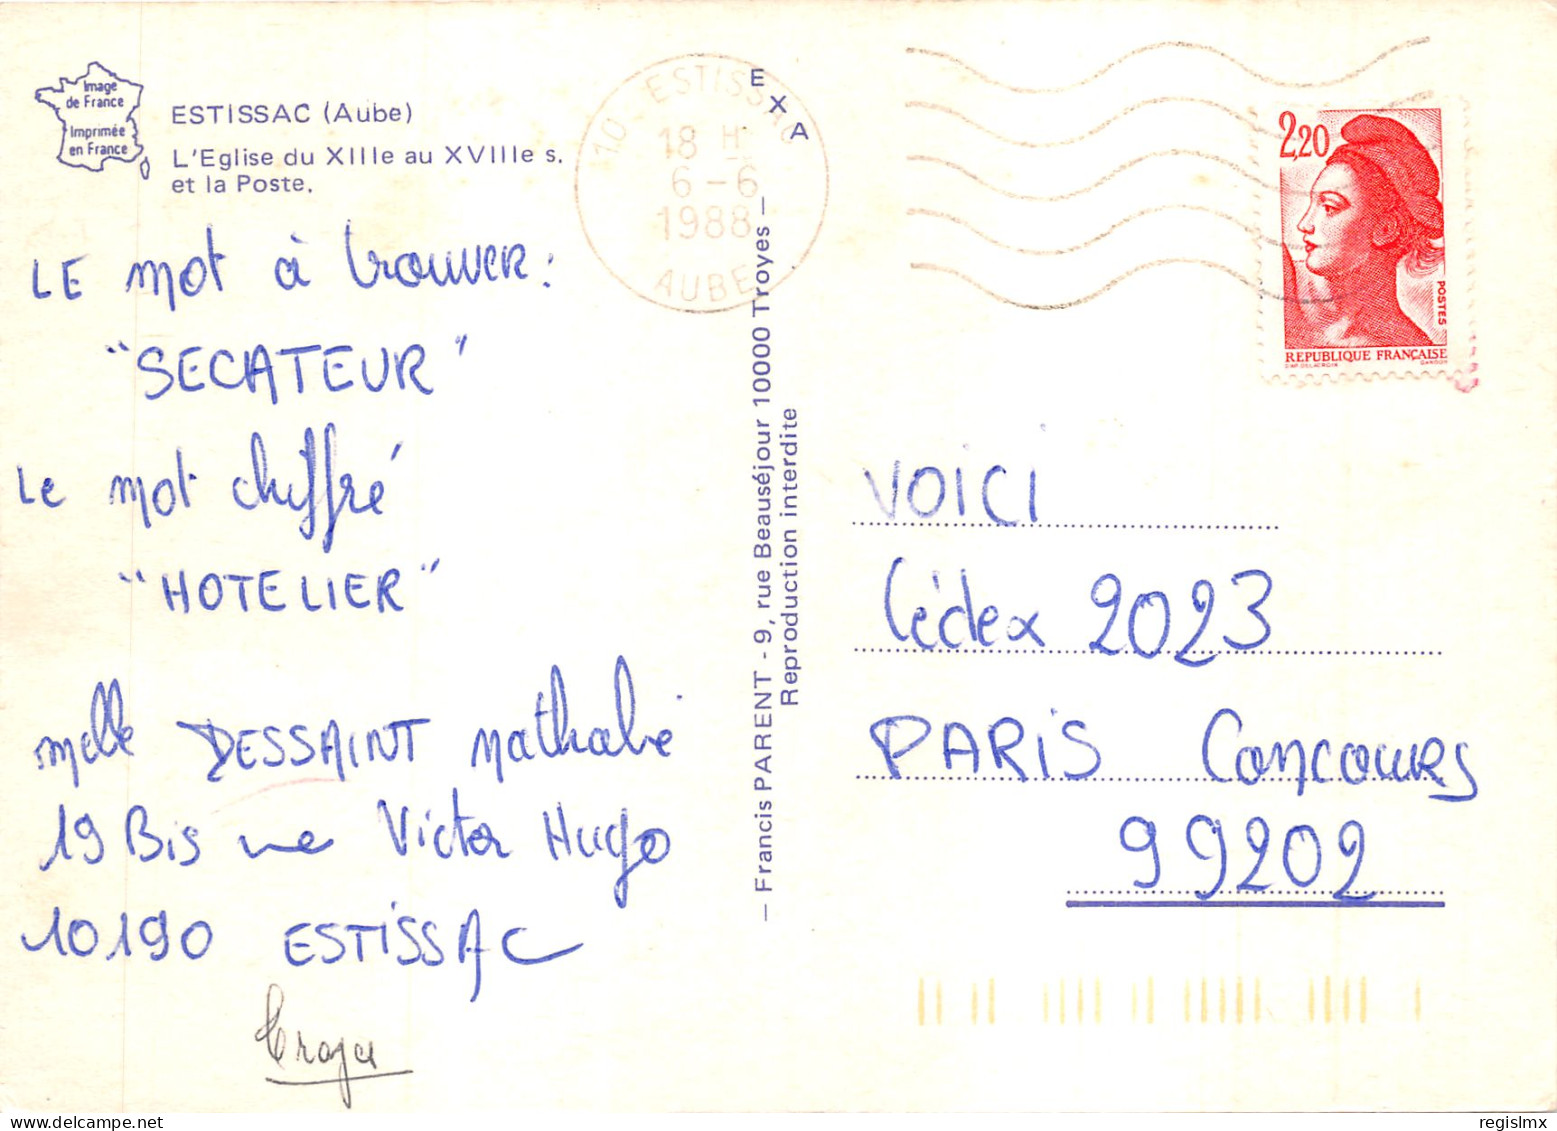 Image
de France
Imprimée
en France
ESTISSAC (Aube)
L'Eglise du XIIIe au XVIIIe s.
et la Poste.
LE mot à trouver :
"SECATEUR"
Le mot chiffré
"HOTELIER"
melle DESSAINT Nathalie
19 Bis rue Victor Hugo
10190 ESTISSAC
10 ESTISSAC
18 H
6-6
1988
AUBE
EXA
— Francis PARENT - 9, rue Beauséjour 10000 Troyes —
Reproduction interdite
2,20
POSTES
REPUBLIQUE FRANÇAISE
D'AP. DELACROIX GANDON
VOICI
Cédex 2023
PARIS Concours
99202
regislmx